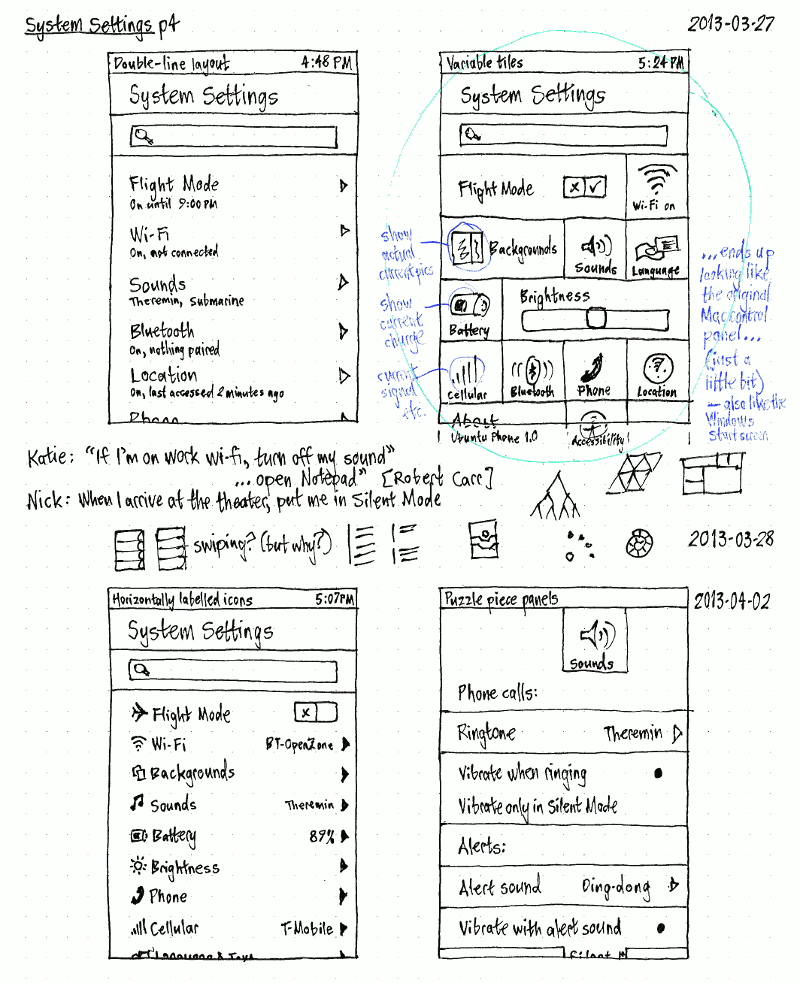 System Settings p4
2013-03-27
Double-line layout 4:48 PM
System Settings
Flight Mode
On until 9:00 PM
Wi-Fi
On, not connected
Sounds
Theremin, Submarine
Bluetooth
On, nothing paired
Location
On, last accessed 2 minutes ago
Phone
Variable tiles 5:24 PM
System Settings
Flight Mode
Wi-Fi on
Backgrounds
Sounds
Language
Battery
Brightness
Cellular
Bluetooth
Phone
Location
About
Ubuntu Phone 1.0
Accessibility
show
actual
current pics
show
current
charge
current
signal
etc.
...ends up
looking like
the original
Mac control
panel...
(just a
little bit)
— also like the
Windows
Start screen
Katie: "If I'm on work wi-fi, turn off my sound"
...open Notepad" [Robert Carr]
Nick: When I arrive at the theater, put me in Silent Mode
swiping? (but why?)
2013-03-28
Horizontally labelled icons 5:07PM
System Settings
Flight Mode
Wi-Fi BT-OpenZone
Backgrounds
Sounds Theremin
Battery 89%
Brightness
Phone
Cellular T-Mobile
Language & Text
2013-04-02
Puzzle piece panels
Sounds
Phone calls:
Ringtone Theremin
Vibrate when ringing
Vibrate only in Silent Mode
Alerts:
Alert sound Ding-dong
Vibrate with alert sound
Silent M